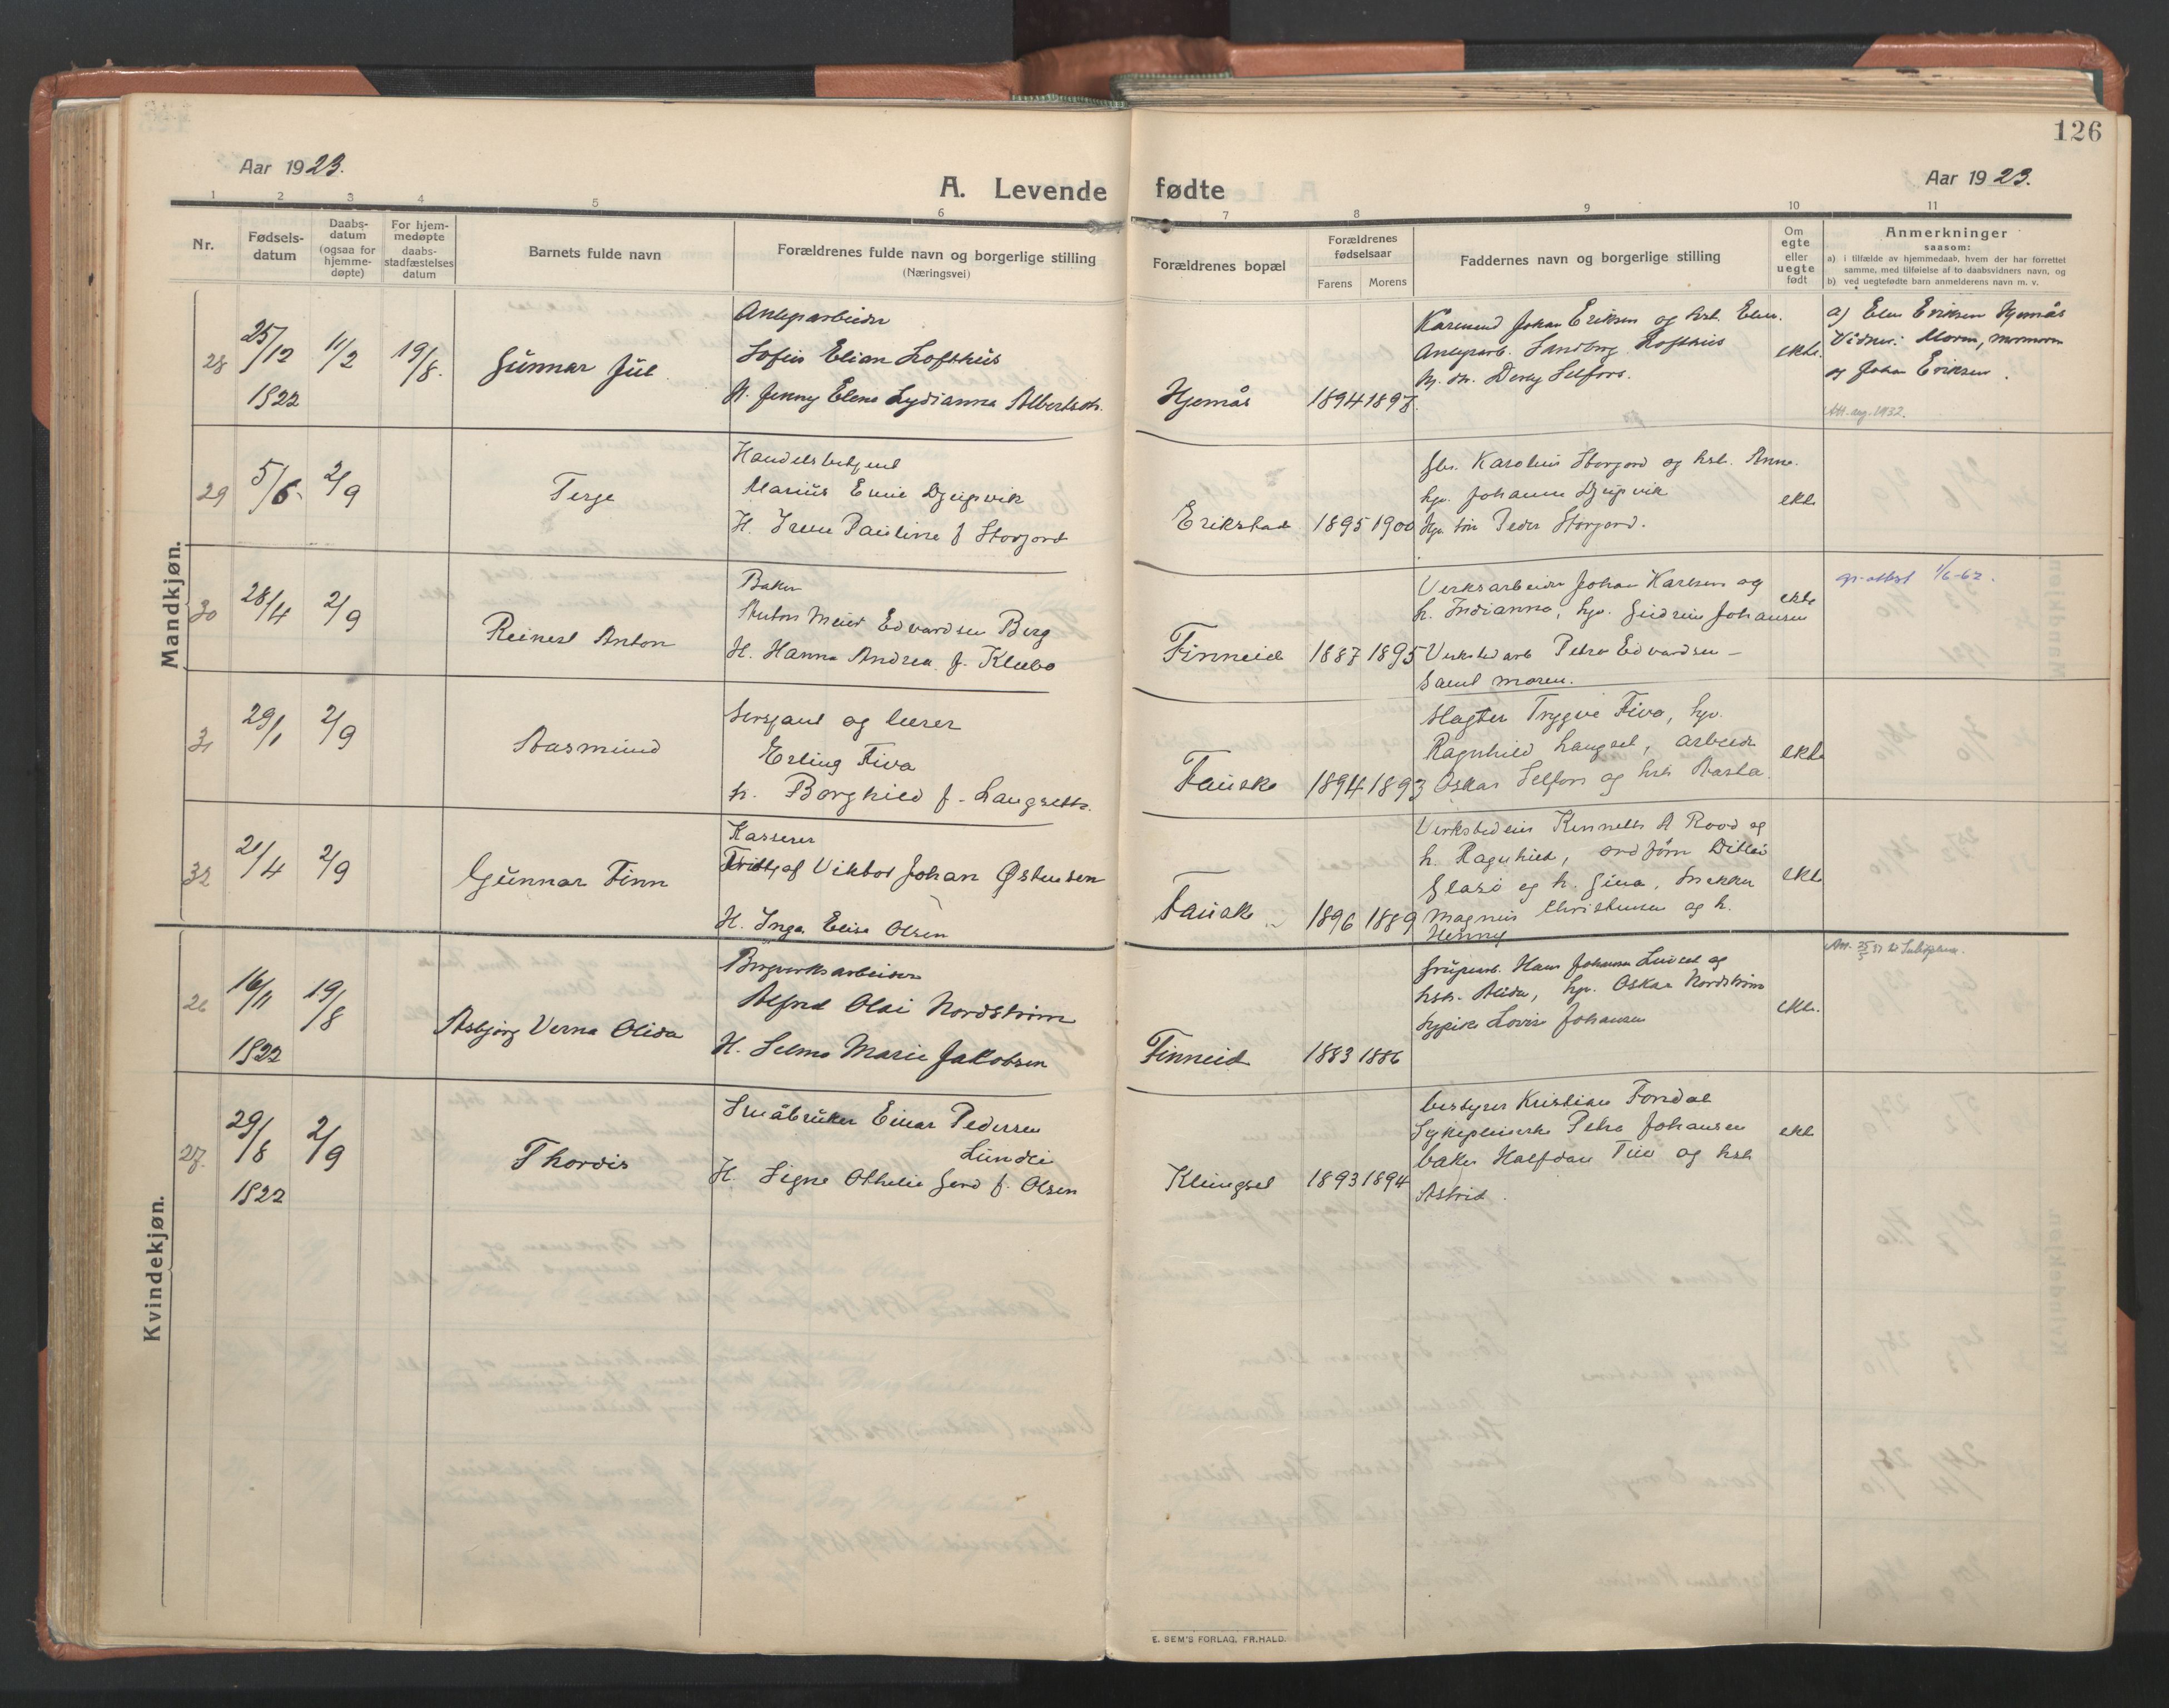 126
Aar 1923.
A. Levende fødte
Aar 1923.
1 2 3 4 5 6 7 8 9 10 11
Nr.
Fødsels-
datum
Daabs-
datum
(ogsaa for
hjemme-
døpte)
For hjem-
medøpte
daabs-
stadfæstelses
datum
Barnets fulde navn
Forældrenes fulde navn og borgerlige stilling
(Næringsvei)
Forældrenes bopæl
Forældrenes
fødselsaar
Farens Morens
Faddernes navn og borgerlige stilling
Om
egte
eller
uegte
født
Anmerkninger
saasom:
a) i tilfælde av hjemmedaab, hvem der har forrettet
samme, med tilføielse af to daabsvidners navn, og
b) ved uegtefødte barn anmelderens navn m. v.
Mandkjøn.
28 25/12 1922 11/2 19/8. Gunnar Jul
Anlegsarbeider
Sofus Elian Lofthus
H. Jenny Elene Lydianna Albertsdt.
Hjemås 1894 1897.
Johan Eriksen og hst. Elen.
Anlegsarb. Sandberg Lofthus
Selfors.
ekte.
a) Elen Eriksen Hjemås
Vidner: Moren, mormoren
og Johan Eriksen.
29 5/6. 2/9 Terje
Handelsbetjent
Marius Emil Djupvik
H. Irene Pauline f Storjord
Erikstad 1895 1900
Gbr. Karolius Storjord og hst. Anne.
hp. Johanne Djupvik
Peder Storjord.
ekte
30 28/4 2/9 Reinert Anton
Baker
Anton Meier Edvardsen Berg
H. Hanna Andrea f. Klebo
Finneid 1887 1895
Verksarbeider Johan Karlsen og
h. Indianna, hp. Gudrun Johansen
Verkstedarb Petra Edvardsen -
Samt moren.
ekte
1/6-62.
31 29/1 2/9 Aasmund
Sersjant og lærer
Erling Fiva
h. Borghild f. Langseth.
Fauske 1894 1893
Slagter Trygve Fiva, hp.
Ragnhild Langset, arbeider
Oskar Selfors og hst Aasta.
ekte
32 21/4 2/9 Gunnar Finn
Kasserer
Fridtjof Viktor Johan Østensen
H. Inga Elise Olsen
Fauske 1896 1889
Verksbedeier Kenneth A Rood og
h. Ragnhild, ordfører Ditlev
og h. Gina, Snekker
Magnus Christensen og h.
Henny
ekte
Kvindekjøn.
26 16/11 1922 19/8 Asbjørg Verna Olida
Bergverksarbeider
Alfred Olai Nordstrøm
H. Selma Marie Jakobsen
Finneid 1883 1886
Hans Johansen og
hst. Alida, hp. Oskar Nordstrøm
hypike Lovise Johansen
ekte.
27. 29/8 1922 2/9 Thordis
Småbruker Einar Pedersen
Lundli
H. Signe Othelie Gerd f. Olsen
Klungset 1893 1894
bestyrer Kristian Fondal
Sykepleierske Petra Johansen
baker Halfdan og hst
Astrid.
ekte
E. SEM'S FORLAG, FR.HALD.